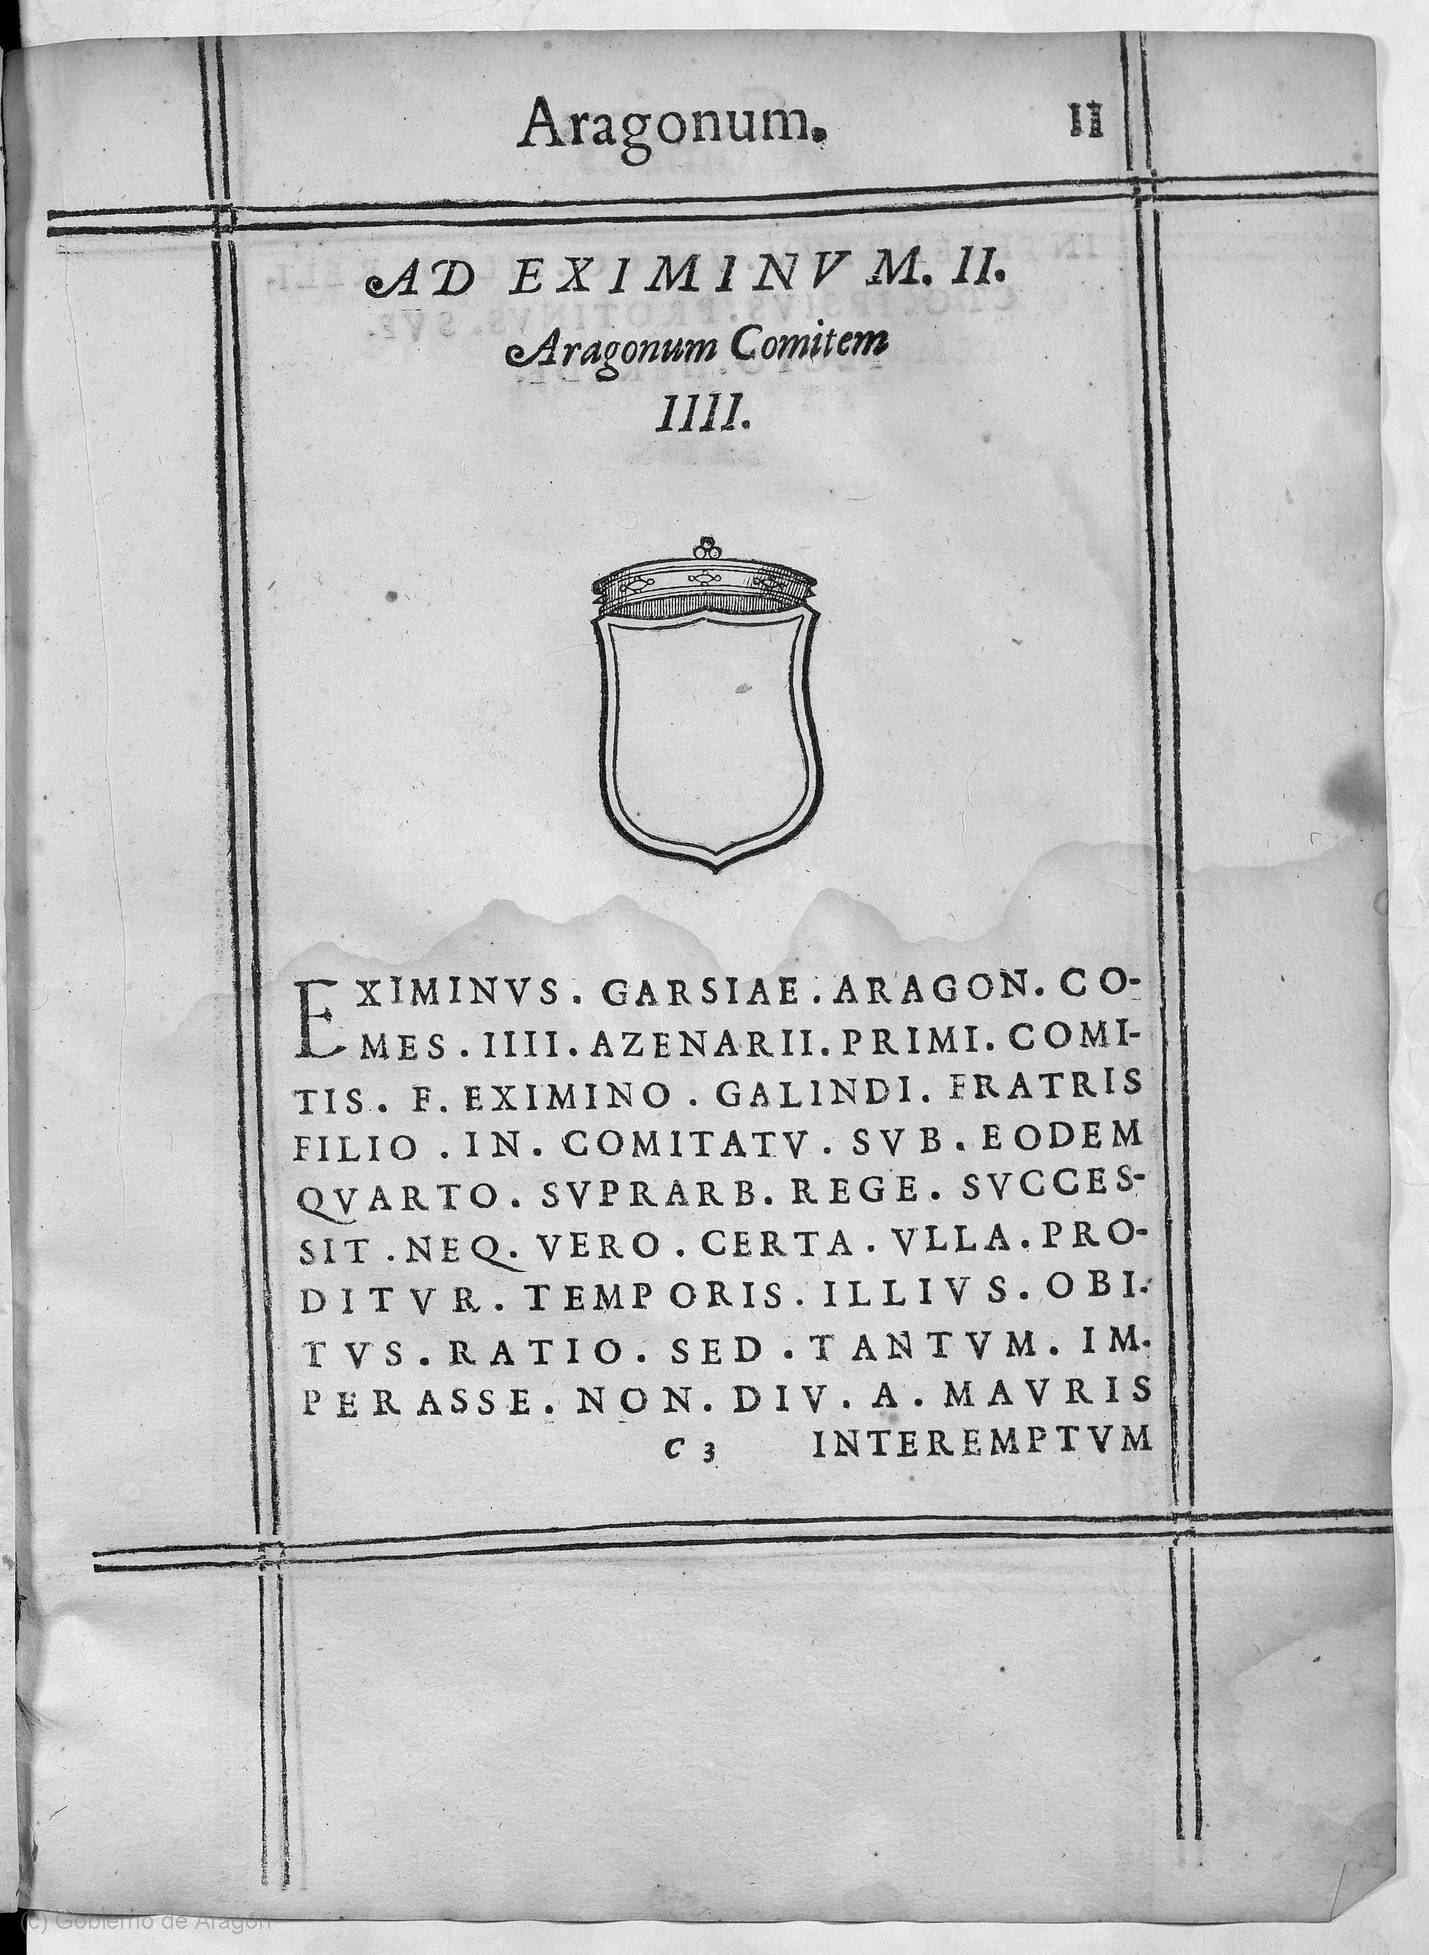 Aragonum. II
AD EXIMINVM. II.
Aragonum Comitem
IIII.
EXIMINVS. GARSIAE. ARAGON. CO-
MES. IIII. AZENARII. PRIMI. COMI-
TIS. F. EXIMINO. GALINDI. FRATRIS
FILIO. IN. COMITATV. SVB. EODEM
QVARTO. SVPRARB. REGE. SVCCES-
SIT. NEQ. VERO. CERTA. VLLA. PRO-
DITVR. TEMPORIS. ILLIVS. OBI-
TVS. RATIO. SED. TANTVM. IM-
PERASSE. NON. DIV. A. MAVRIS
C 3 INTEREMPTVM
(c) Gobierno de Aragón